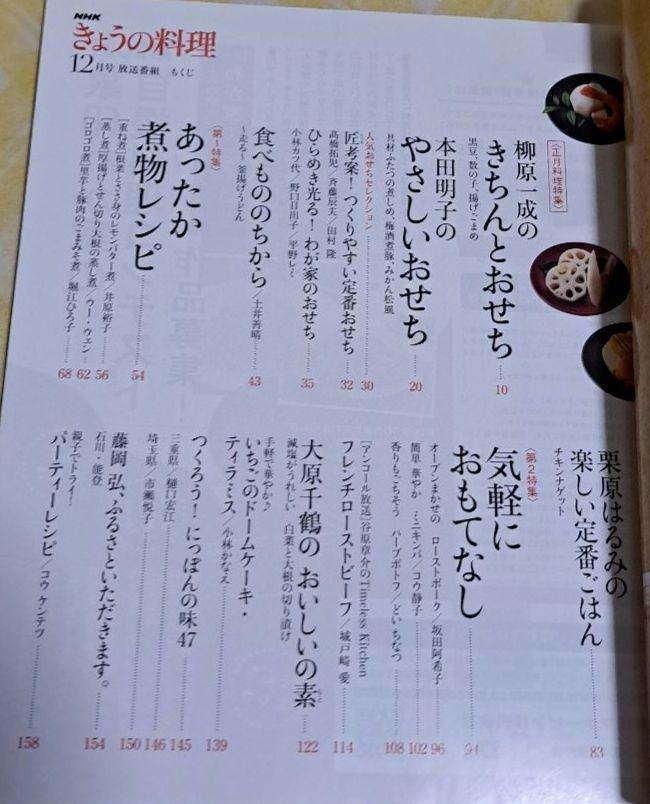 NHK
きょうの料理
12月号 放送番組 もくじ
〈正月料理特集〉
柳原一成の
きちんとおせち
黒豆、数の子、揚げごまめ
10
本田明子の
やさしいおせち
具材ふたつの煮しめ、梅酒煮豚、みかん松風
20
人気おせちセレクション
30
匠考案！つくりやすい定番おせち
髙橋拓児／斉藤辰夫／田村 隆
32
ひらめき光る！わが家のおせち
小林カツ代／野口日出子／平野レミ
35
食べもののちから／土井善晴
〜走る〜 釜揚げうどん
43
〈第1特集〉
あったか
煮物レシピ
54
［重ね煮］根菜とささ身のレモンバター煮／井原裕子
56
［蒸し煮］厚揚げとせん切り大根の蒸し煮／ウー・ウェン
62
［ゴロゴロ煮］里芋と豚肉のごまみそ煮／堀江ひろ子
68
栗原はるみの
楽しい定番ごはん
チキンナゲット
83
〈第2特集〉
気軽に
おもてなし
94
オーブンまかせの ローストポーク／坂田阿希子
96
簡単 華やか ミニキンパ／コウ静子
102
香りもごちそう ハーブポトフ／どいちなつ
108
［アンコール放送］谷原章介のTimeless Kitchen
フレンチローストビーフ／城戸崎 愛
114
大原千鶴の おいしいの素
減塩がうれしい 白菜と大根の切り漬け
122
手軽で華やか♪
いちごのドームケーキ・
ティラミス／小林かなえ
139
つくろう！にっぽんの味47
三重県／樋口宏江
145
146
埼玉県／市瀬悦子
150
藤岡 弘、ふるさといただきます。
石川・能登
154
親子でトライ！
パーティーレシピ／コウ ケンテツ
158